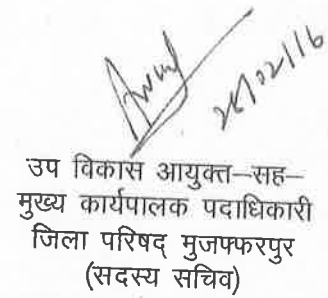 उप विकास आयुक्त–सह–
मुख्य कार्यपालक पदाधिकारी
जिला परिषद् मुजफ्फरपुर
(सदस्य सचिव)